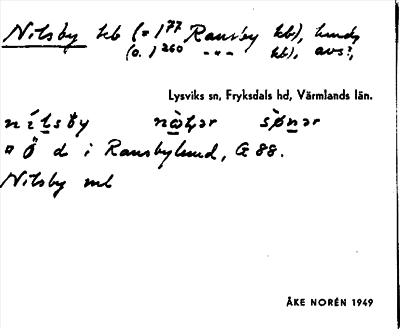 Nilsby hb (= 1⁷⁷ Ransby hb), hmd,
(o. 1²⁶⁰ -"- hb), avs?,
Lysviks sn, Fryksdals hd, Värmlands län.
¤ Ö d i Ransbylund, G 88.
Nilsby ml
ÅKE NORÉN 1949